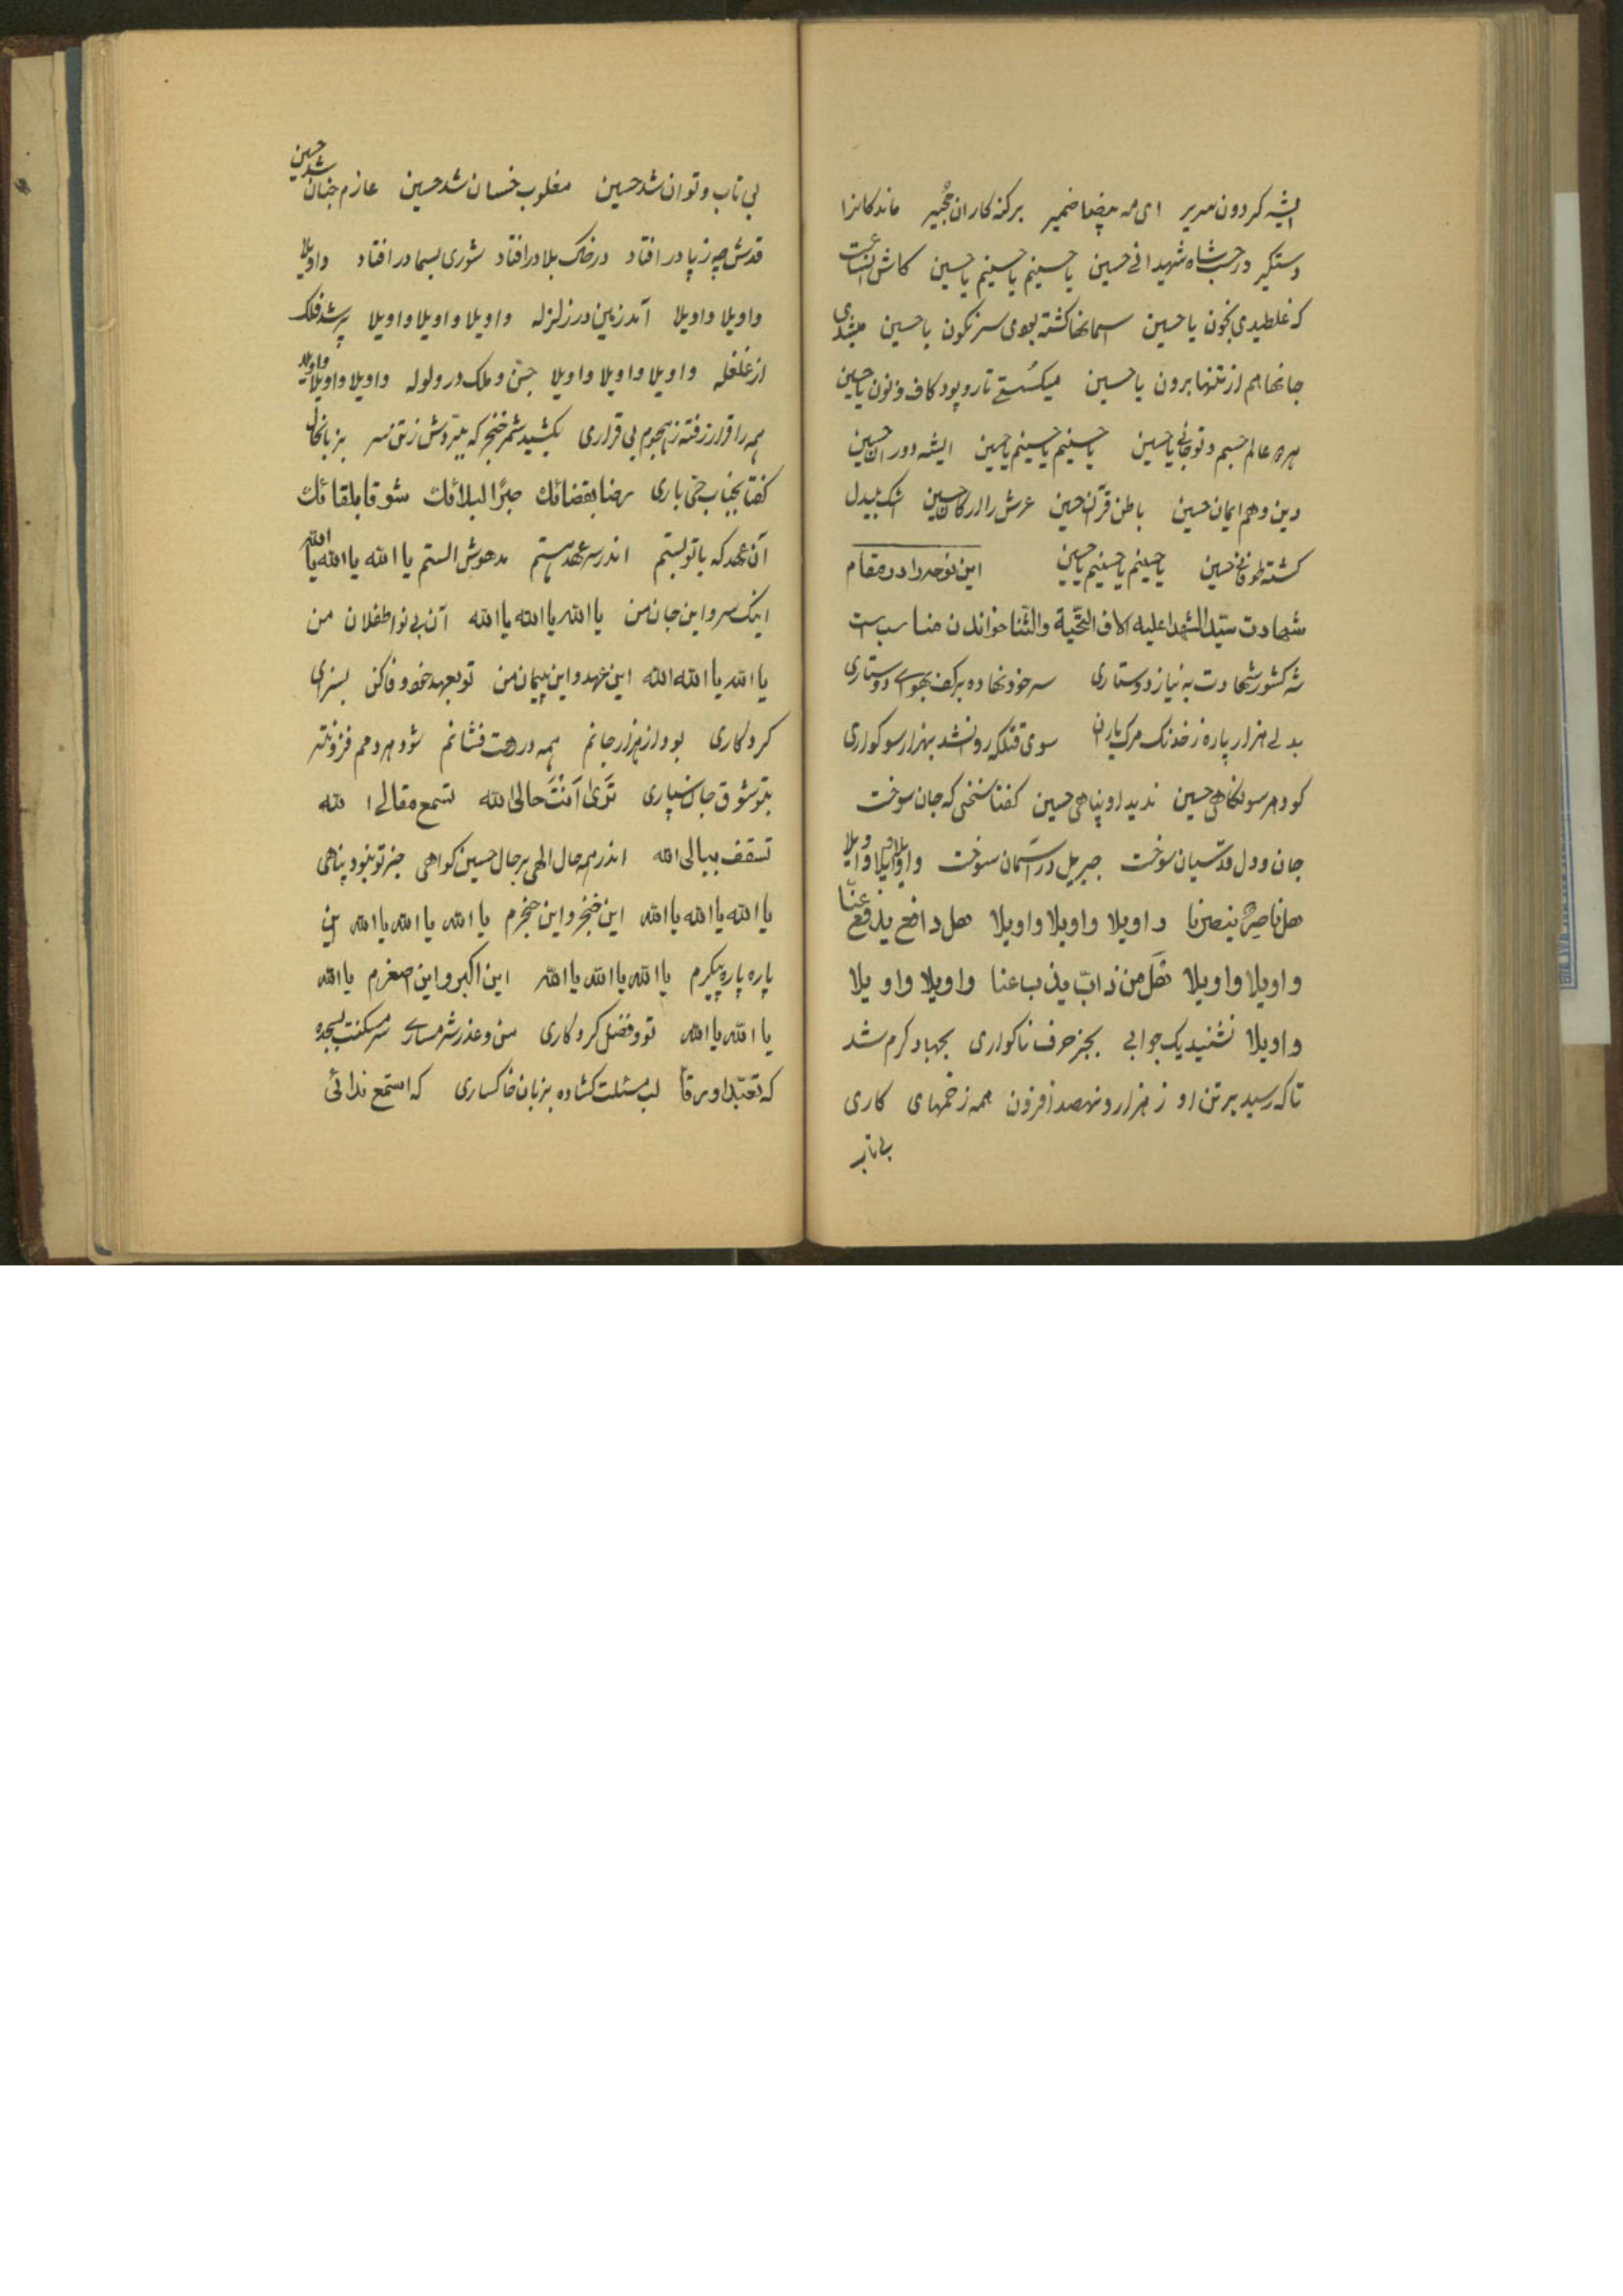 ایشه کردون سریر ای مه بیضا ضمیر برکنه کاران مجیر ماندکانرا
دستکیر در حسب شاه شهیدانی حسین یا حسینم یا حسینم یا حسین کاش آنساعت
که غلطیدی بخون یا حسین سمانها کشته بودی سرنکون یا حسین میشدی
جانها هم از تنها برون یا حسین میکسستی تار و پود کاف و نون یا حسین
عالم جسم و تو جانی یا حسین یا حسینم یا حسینم یا حسین ایشه دوران حسین
دین و هم ایمان حسین باطن قرآن حسین عرش را ارکان حسین اشک بیدل
کشته طوفانی حسین یا حسینم یا حسینم یا حسین این نوحه را در مقام
شهادت سیّد الشهدا علیه الاف التحیّة والثّنا خواندن مناسب است
شه کشور شهادت به نیاز دوستاری سر خود نهاده بر کف بهوای دوستاری
بدلی هزار پاره ز خدنک مرک یاران سوی قتلکه روانشد بهزار سوکواری
کو دهر سو نکاهی حسین ندید او پناهی حسین کفتا سخنی که جان سوخت
جان و دل قدسیان سوخت جبریل در آسمان سوخت واویلا واویلا واویلا
هل ناصرٌ ینصرنا واویلا واویلا واویلا هل دافع یدفع عنّا
واویلا واویلا هَل من ذابّ یذب عنا واویلا واویلا
واویلا نشنید یک جوابی بجز حرف ناکواری بجهاد کرم شد
تا که رسید بر تن او ز هزار و نهصد افزون همه زخمهای کاری
بی تاب
بی تاب و توان شد حسین مغلوب خسان شد حسین عازم جنان شد حسین
قدش چه ز پا در افتاد در خاک بلا در افتاد شوری بسما در افتاد واویلا
واویلا واویلا آمد زمین در زلزله واویلا واویلا واویلا پر شد فلک
از غلغله واویلا واویلا واویلا جنّ و ملک در ولوله واویلا واویلا واویلا
همه را قرار رفته ز هجوم بی قراری بکشید شمر خنجر که ببرّدش ز تن سر بزبانحال
کفتا بجناب حیّ باری رضا بقضائک صبرًا لبلائک شوقا بلقائک
آن عهد که با تو بستم اندر سر عهد هستم مدهوش الستم یا الله یا الله یا الله
اینک سر و این جان من یا الله یا الله یا الله آن بی نوا طفلان من
یا الله یا الله الله این عهد و این پیمان من تو بعهد خود وفا کن بسزای
کردکاری بود از هزار جانم همه در رهت فشانم شود هر دمم فزونتر
بتو شوق جان سپاری تَریٰ اَنْتَ حالی الله تسمع مقالی الله
تسقف ببالی الله اندر همه حال الهی بر حال حسین کواهی جز تو نبود پناهی
یا الله یا الله یا الله این خنجر و این حنجرم یا الله یا الله یا الله این
پاره پاره پیکرم یا الله یا الله یا الله این اکبر و این اصغرم یا الله
یا الله یا الله تو و فضل کردکاری من و عذر شرمساری سر مسکنت بسجده
که تعبّدا و رقا لب مسئلت کشاده بزبان خاکساری که استمع ندائی